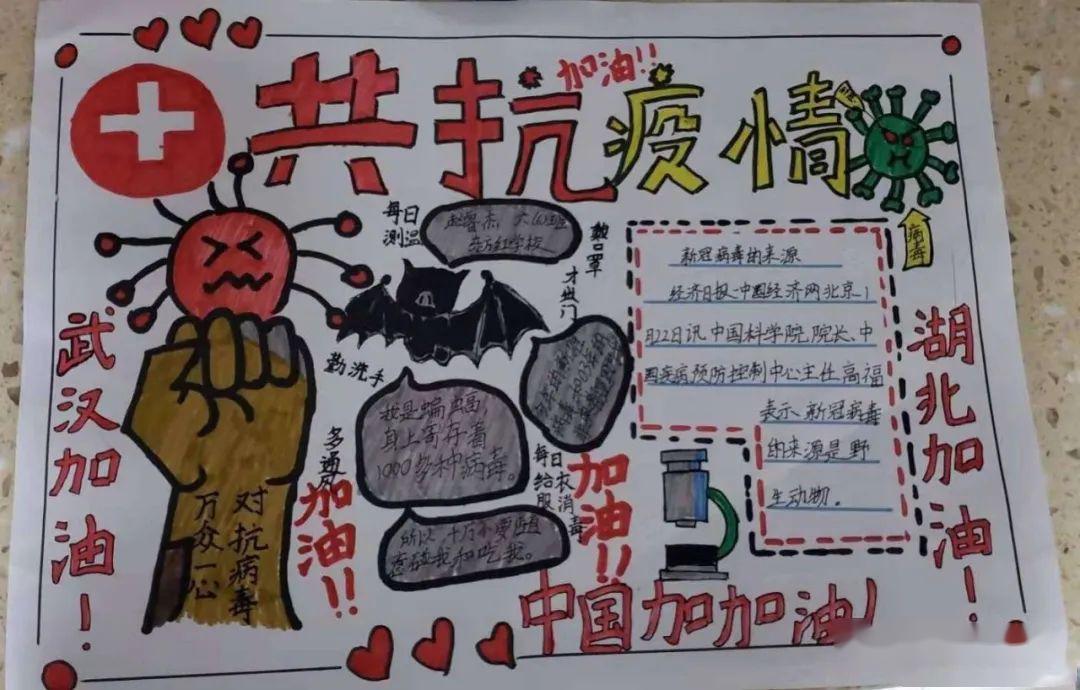 共抗疫情
加油!!
每日
测温
赵睿杰 六(6)班
东方红学校
戴口罩
才出门
病毒
新冠病毒的来源
经济日报-中国经济网北京1
月22日讯 中国科学院院长、中
国疾病预防控制中心主任高福
表示、新冠病毒
的来源是野
生动物。
武汉加油!
湖北加油!
勤洗手
我是蝙蝠
身上寄存着
1000多种病毒。
多通风
每日
给衣服消毒
加油!!
加油!!
对抗病毒
万众一心
所以千万不要随
意碰我和吃我。
中国加加油!